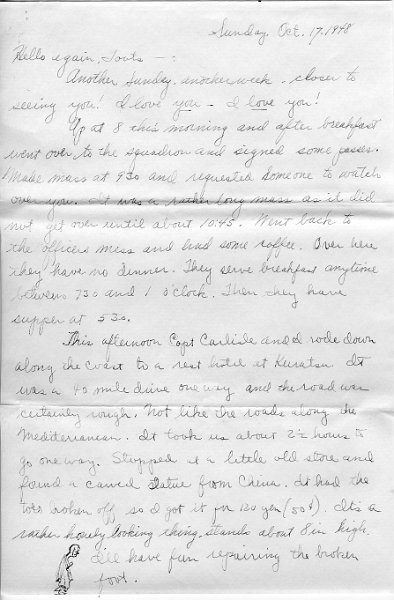 Sunday Oct. 17. 1948
Hello again, Toots — :
Another Sunday. another week - closer to
seeing you! I love you — I love you!
Up at 8 this morning and after breakfast
went over to the squadron and signed some passes.
Made mass at 930 and requested someone to watch
over you. It was a rather long mass as it did
not get over until about 10:45. Went back to
the officers mess and had some coffee. Over here
they have no dinner. They serve breakfast anytime
between 730 and 1 o'clock. Then they have
supper at 530.
This afternoon Capt Carlisle and I rode down
along the coast to a rest hotel at Karatsu. It
was a 40 mile drive one way and the road was
certainly rough. Not like the roads along the
Mediterranean. It took us about 2½ hours to
go one way. Stopped at a little old store and
found a carved statue from China. It had the
toes broken off so I got it for 120 yen (50¢). It's a
rather homely looking thing. Stands about 8 in high.
I'll have fun repairing the broken
foot.